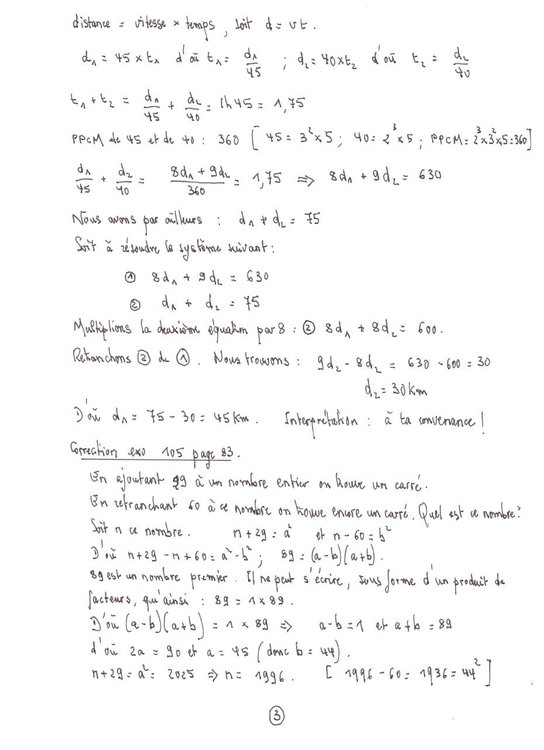 distance = vitesse × temps, soit d = vt.
d₁ = 45 × t₁ d'où t₁ = d₁/45 ; d₂ = 40 × t₂ d'où t₂ = d₂/40
t₁ + t₂ = d₁/45 + d₂/40 = 1h45 = 1,75
PPCM de 45 et de 40 : 360 [ 45 = 3² × 5 ; 40 = 2³ × 5 ; PPCM = 2³ × 3² × 5 = 360 ]
d₁/45 + d₂/40 = (8d₁ + 9d₂)/360 = 1,75 ⇒ 8d₁ + 9d₂ = 630
Nous avons par ailleurs : d₁ + d₂ = 75
Soit à résoudre le système suivant :
① 8d₁ + 9d₂ = 630
② d₁ + d₂ = 75
Multiplions la deuxième équation par 8 : ② 8d₁ + 8d₂ = 600.
Retranchons ② de ①. Nous trouvons : 9d₂ - 8d₂ = 630 - 600 = 30
d₂ = 30 km
D'où d₁ = 75 - 30 = 45 km. Interprétation : à ta convenance !
Correction exo 105 page 83.
En ajoutant 29 à un nombre entier on trouve un carré.
En retranchant 60 à ce nombre on trouve encore un carré. Quel est ce nombre ?
Soit n ce nombre. n + 29 = a² et n - 60 = b²
D'où n + 29 - n + 60 = a² - b² ; 89 = (a - b)(a + b).
89 est un nombre premier. Il ne peut s'écrire, sous forme d'un produit de
facteurs, qu'ainsi : 89 = 1 × 89.
D'où (a - b)(a + b) = 1 × 89 ⇒ a - b = 1 et a + b = 89
d'où 2a = 90 et a = 45 (donc b = 44).
n + 29 = a² = 2025 ⇒ n = 1996. [ 1996 - 60 = 1936 = 44² ]
③